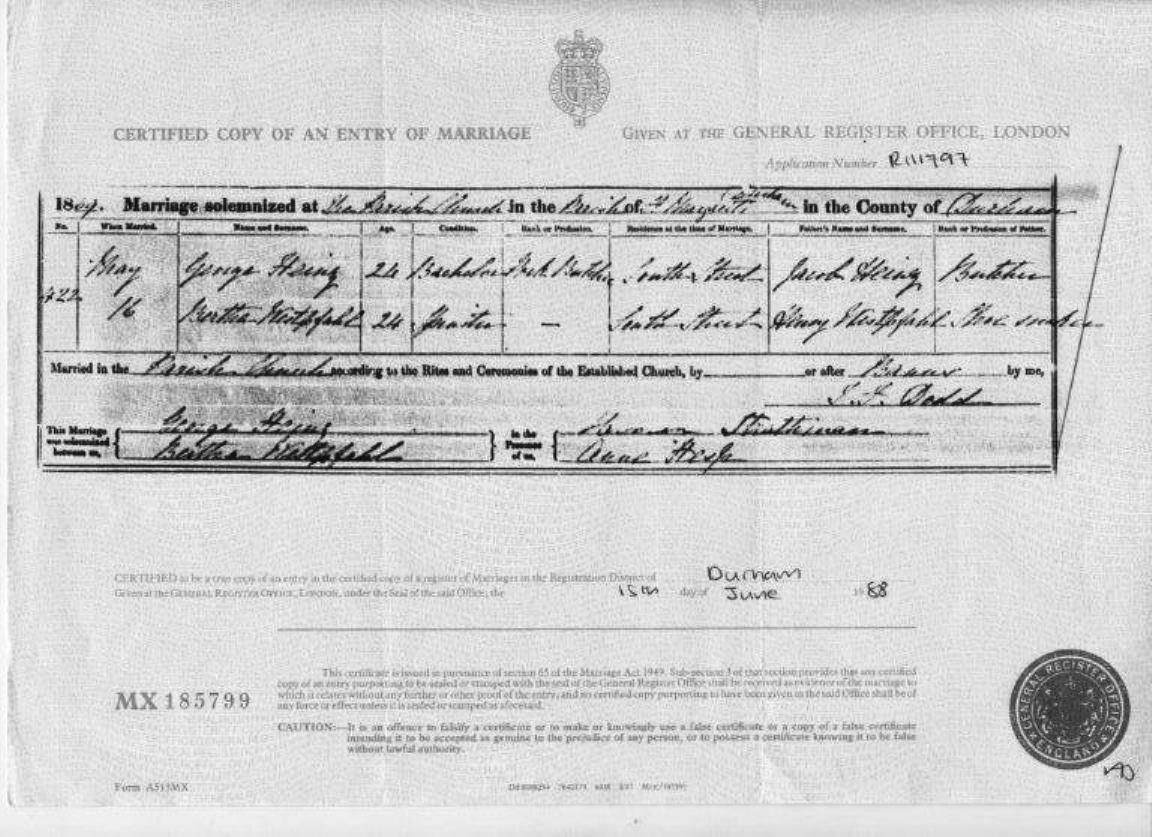 CERTIFIED COPY OF AN ENTRY OF MARRIAGE
GIVEN AT THE GENERAL REGISTER OFFICE, LONDON
Application Number R111797
Marriage solemnized at The Parish Church in the Parish of St Margaret's in the County of Durham
No. When Married. Name and Surname. Age. Condition. Rank or Profession. Residence at the time of Marriage. Father's Name and Surname. Rank or Profession of Father.
422 May George Heing 24 Bachelor Pork Butcher South Street Jacob Heing Butcher
16 Bertha Westpfahl 24 Spinster — South Street Henry Westpfahl
Married in the Parish Church according to the Rites and Ceremonies of the Established Church, by or after Banns by me,
Dodd
This Marriage was solemnized between us, George Heing
Bertha Westpfahl
in the Presence of us,
CERTIFIED to be a true copy of an entry in the certified copy of a register of Marriages in the Registration District of Durham
Given at the GENERAL REGISTER OFFICE, LONDON, under the Seal of the said Office, the 15th day of June 1988
MX 185799
This certificate is issued in pursuance of section 65 of the Marriage Act 1949. Sub-section 3 of that section provides that any certified
copy of an entry purporting to be sealed or stamped with the seal of the General Register Office shall be received as evidence of the marriage to
which it relates without any further or other proof of the entry, and no certified copy purporting to have been given in the said Office shall be of
any force or effect unless it is sealed or stamped as aforesaid.
CAUTION:—It is an offence to falsify a certificate or to make or knowingly use a false certificate or a copy of a false certificate
intending it to be accepted as genuine to the prejudice of any person, or to possess a certificate knowing it to be false
without lawful authority.
GENERAL REGISTER OFFICE
ENGLAND
Form A513MX